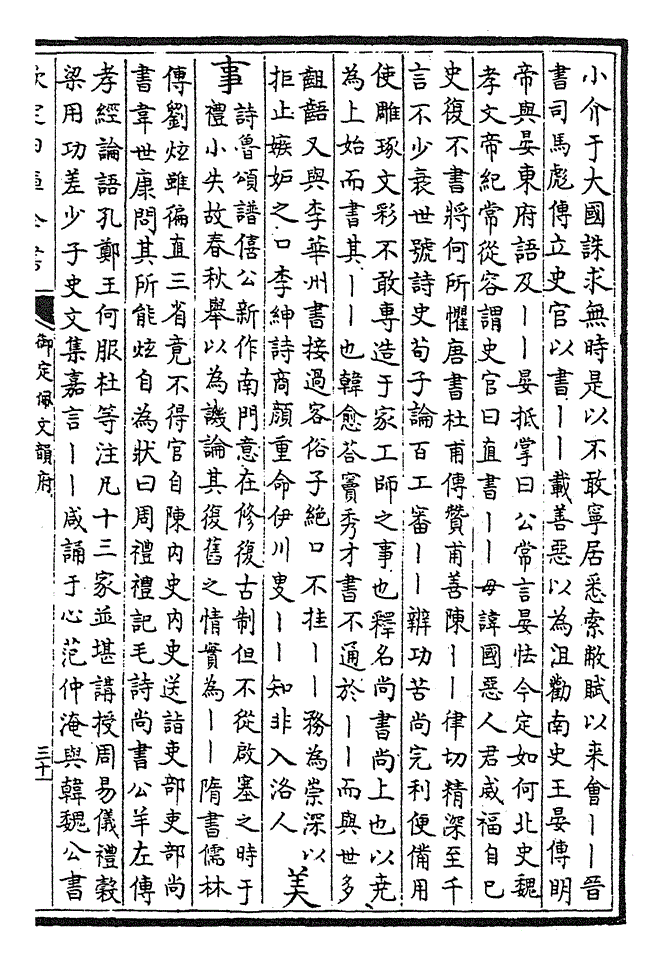 小介于大國誅求無時是以不敢寧居悉索敝賦以来會丨丨晉
書司馬彪傳立史官以書丨丨載善惡以為沮勸南史王晏傳明
帝與晏東府語及丨丨晏抵掌曰公常言晏怯今定如何北史魏
孝文帝紀常從容謂史官曰直書丨丨毋諱國惡人君威福自己
史復不書將何所懼唐書杜甫傳贊甫善陳丨丨律切精深至千
言不少衰世號詩史荀子論百工審丨丨辨功苦尚完利便備用
使雕琢文彩不敢專造于家工師之事也釋名尚書尚上也以堯
為上始而書其丨丨也韓愈荅竇秀才書不通於丨丨而與世多
齟齬又與李華州書接過客俗子絶口不挂丨丨務為崇深以
拒止嫉妬之口李紳詩商顔重命伊川叟丨丨知非入洛人 美
事 詩魯頌譜僖公新作南門意在修復古制但不從啟塞之時于
禮小失故春秋舉以為譏論其復舊之情實為丨丨隋書儒林
傳劉炫雖徧直三省竟不得官自陳内史内史送詣吏部吏部尚
書韋世康問其所能炫自為狀曰周禮禮記毛詩尚書公羊左傳
孝經論語孔鄭王何服杜等注凡十三家並堪講授周易儀禮穀
梁用功差少子史文集嘉言丨丨咸誦于心范仲淹與韓魏公書
御定佩文韻府
三十